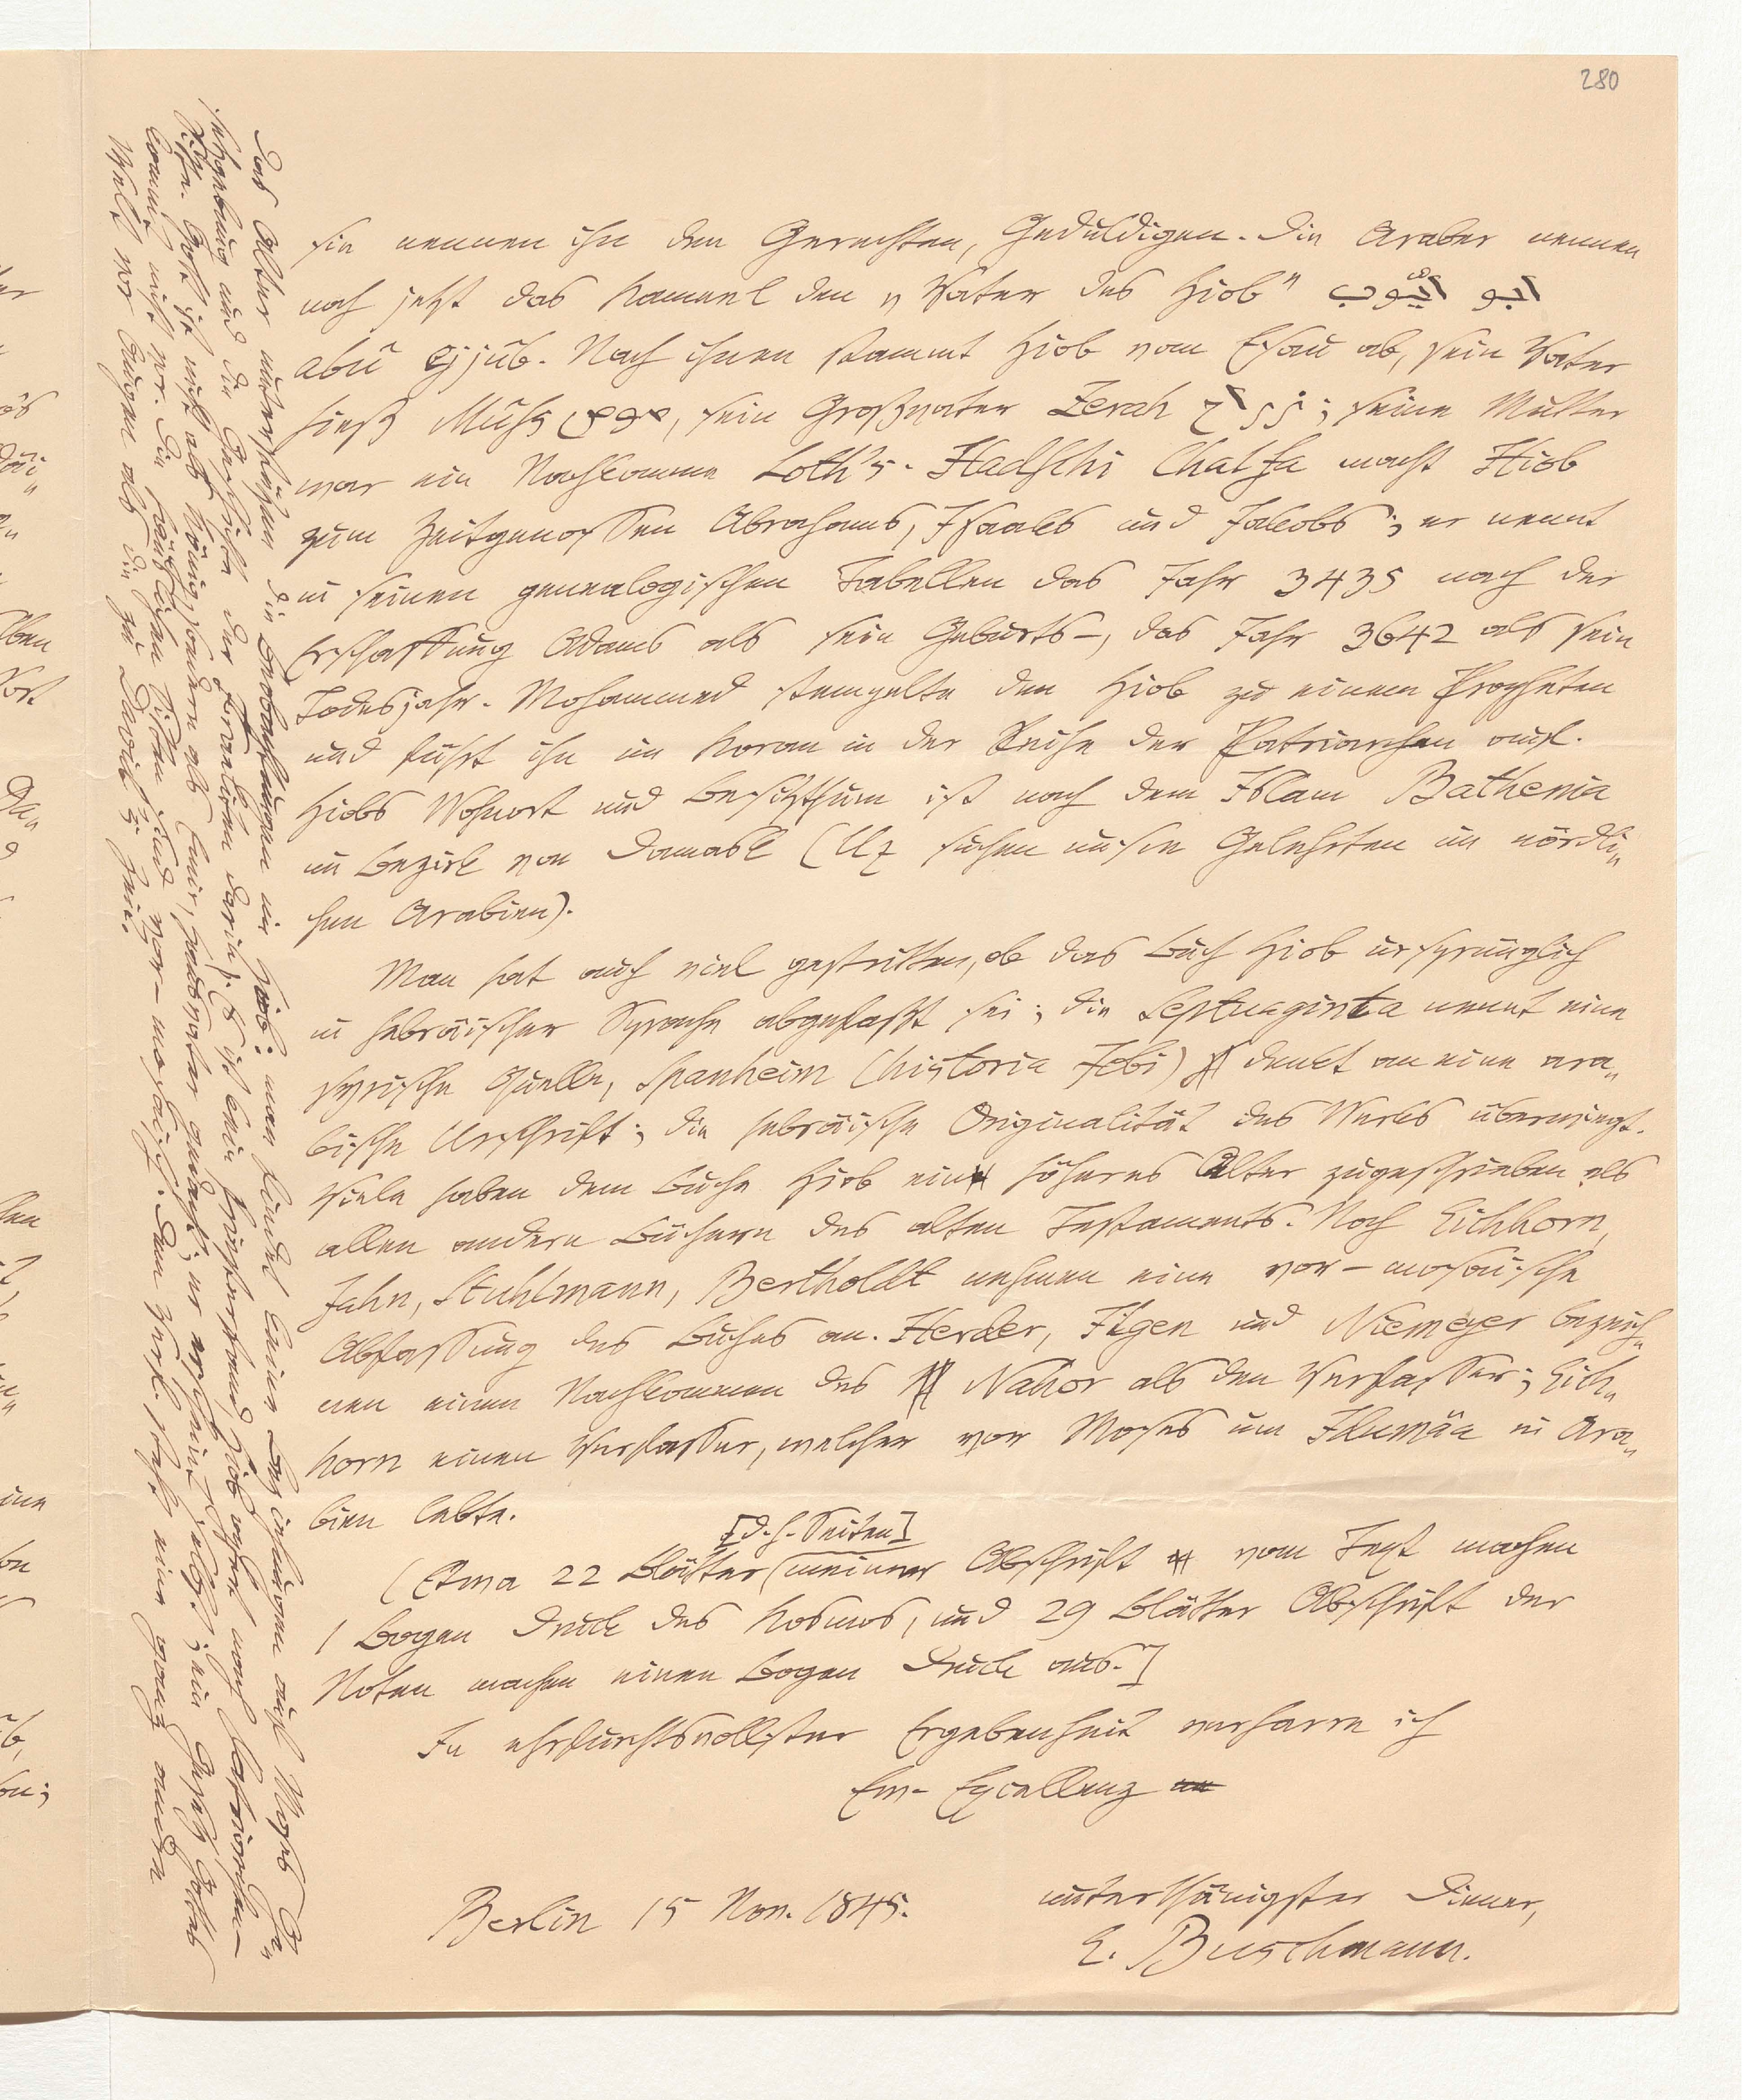 280
sie nennen ihn den Gerechten, Geduldigen. Die Araber nennen
noch jetzt das Kameel den „Vater des Hiob" ابو ايّوب
abû ejjûb. Nach ihnen stammt Hiob vom Esau ab, sein Vater
hieß Muhs موص, sein Großvater Zerah زرح; seine Mutter
war ein Nachkomme Loth's. Hadschi Chalfa macht Hiob
zum Zeitgenossen Abrahams, Isaaks und Jakobs; er nennt
in seinen genealogischen Tabellen das Jahr 3435 nach der
Erschaffung Adams als sein Geburts-, das Jahr 3642 als sein
Todesjahr. Mohammed stempelte den Hiob zu einem Propheten
und führt ihn im Koran in der Reihe der Patriarchen auf.
Hiobs Wohnort und Besitzthum ist nach dem Islam Bathenia
im Bezirk von Damask (Uz suchen unsre Gelehrten im nördli„
chen Arabien).
Man hat auch viel gestritten, ob das Buch Hiob ursprünglich
in hebräischer Sprache abgefaßt sei; die Septuaginta nennt eine
syrische Quelle, Spanheim (historia Jobi) denkt an eine ara„
bische Urschrift; die hebräische Originalität des Werks überwiegt.
Viele haben dem Buche Hiob ein höheres Alter zugeschrieben als
allen andern Büchern des alten Testaments. Noch Eichhorn,
Jahn, Stuhlmann, Bertholdt nehmen eine vor-mosaische
Abfassung des Buches an. Herder, Ilgen und Niemeyer bezeich„
nen einen Nachkommen des Nahor als den Verfasser; Eich„
horn einen Verfasser, welcher vor Moses um Idumäa in Ara„
bien lebte.
[d.h. Seiten]
(Etwa 22 Blätter meiner Abschrift vom Text machen
1 Bogen Druck des Kosmos, und 29 Blätter Abschrift der
Noten machen einen Bogen Druck aus.]
In ehrfurchtsvollster Ergebenheit verharre ich
Ew. Excellenz
unterthänigster Diener,
Berlin 15 Nov. 1845.
E. Buschmann.
Das Alter unterstützen die Beobachtungen im Hiob: man findet keine Beziehungen auf Moses Ge„
setzgebung und die Geschichte der Israeliten darin. Es ist kein Priesterstand, Hiob opfert nach Patriarchen-
Sitte. Gott ist nicht als König, sondern als Emir, Hausvater gedacht; er erscheint selbst; ein Gesetz Gottes
kommt nicht vor. Die häuslichen Sitten sind vor-mosaisch. Dem Verf. schwebt eine ganz andere
Welt vor Augen als die zu Davids Zeit.